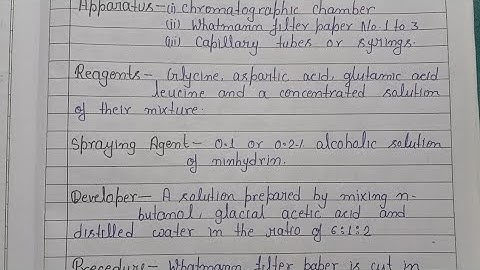 Apparatus—(i) Chromatographic chamber
(ii) Whatmann filter paper No 1 to 3
(iii) Capillary tubes or syrings.
Reagents— Glycine, aspartic acid, glutamic acid
leucine and a concentrated solution
of their mixture.
Spraying Agent— 0.1 or 0.2% alcoholic solution
of ninhydrin.
Developer— A solution prepared by mixing n-
butanol, glacial acetic acid and
distilled water in the ratio of 6:1:2
Procedure— Whatmann filter paper is cut in